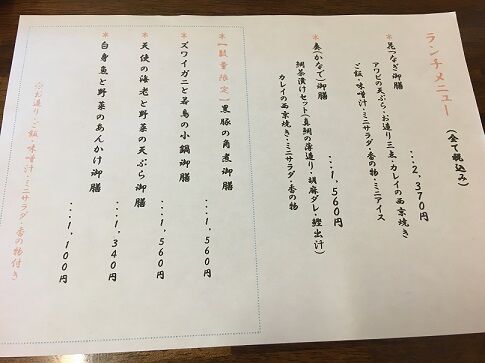 ランチメニュー (全て税込み)
＊花つなぎ御膳 ・・・2,370円
アワビの天ぷら・お造り三点・カレイの西京焼き
ご飯・味噌汁・ミニサラダ・香の物・ミニアイス
＊奏(かなで)御膳 ・・・1,560円
鯛茶漬けセット(真鯛の薄造り・胡麻ダレ・鰹出汁)
カレイの西京焼き・ミニサラダ・香の物
＊【数量限定】黒豚の角煮御膳 ・・・1,560円
＊ズワイガニと若鳥の小鍋御膳 ・・・1,560円
＊天使の海老と野菜の天ぷら御膳 ・・・1,340円
＊白身魚と野菜のあんかけ御膳 ・・・1,100円
※お造り・ご飯・味噌汁・ミニサラダ・香の物付き